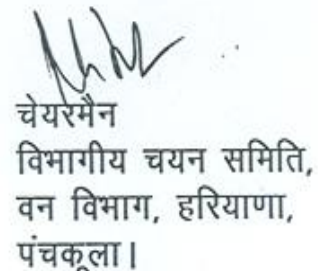 चेयरमैन
विभागीय चयन समिति,
वन विभाग, हरियाणा,
पंचकूला।